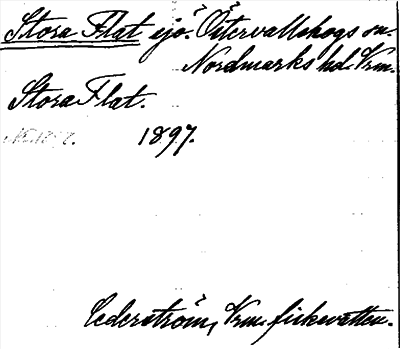 Stora Flat sjö. Östervallskogs sn.
Nordmarks hd. Vrm.
Stora Flat.
1897.
Cederström, Vrm. fiskevatten.